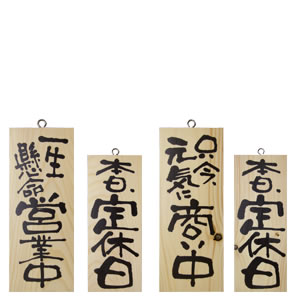 一生
懸命
営業中
本日、
定休日
只今、
元気に
商い中
本日、
定休日